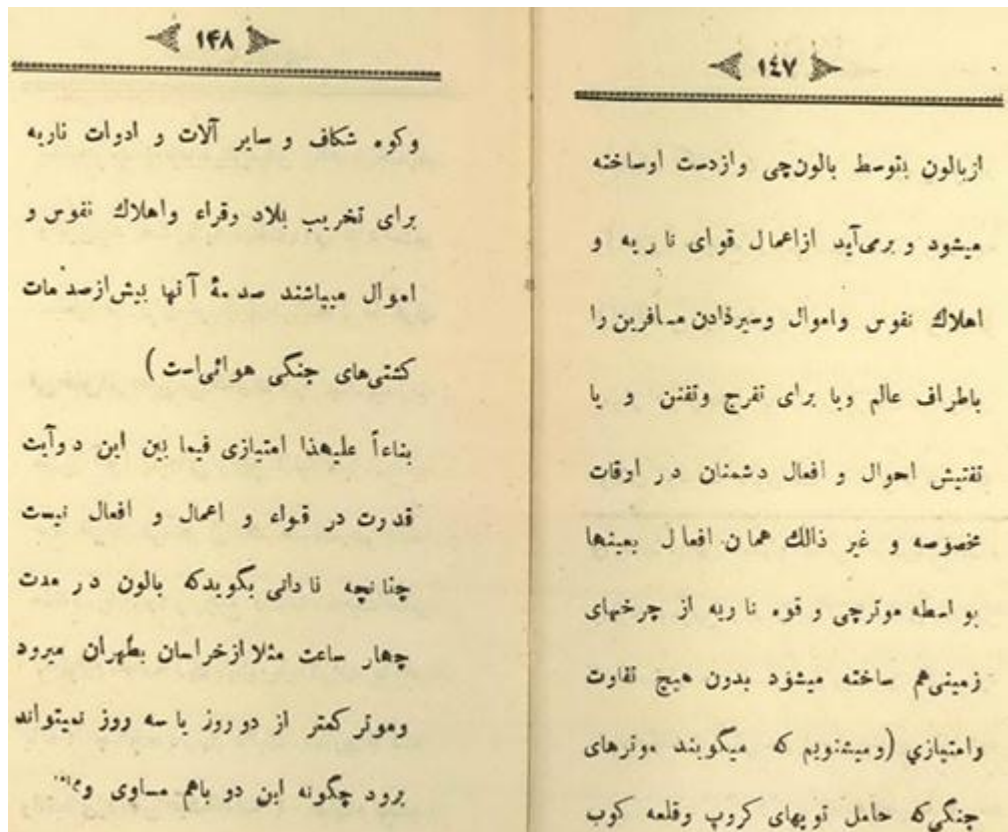 ۱٤۷
ازبالون بتوسط بالون‌چی وازدست اوساخته
میشود و برمی‌آید ازاعمال قوای ناریه و
اهلاك نفوس واموال وسیردادن مسافرین را
باطراف عالم ویا برای تفرج وتفنن و یا
تفتیش احوال و افعال دشمنان در اوقات
مخصوصه و غیر ذالك همان افعال بعینها
بواسطه موترچی و قوه ناریه از چرخهای
زمینی‌هم ساخته میشود بدون هیچ تفاوت
وامتیازي (ومیشنویم که میگویند موترهای
جنگی‌که حامل توپهای کروپ وقلعه کوب
۱۴۸
وکوه شکاف و سایر آلات و ادوات ناریه
برای تخریب بلاد وقراء واهلاك نفوس و
اموال میباشند صدمهٔ آنها بیش‌ازصدمات
کشتی‌های جنگی هوائی‌است)
بناءاً علیهذا امتیازی فیما بین این دوآیت
قدرت در قواء و اعمال و افعال نیست
چنانچه نادانی بگویدکه بالون در مدت
چهار ساعت مثلا ازخراسان بطهران میرود
وموتر کمتر از دوروز یا سه روز نمیتواند
برود چگونه این دو باهم مساوی